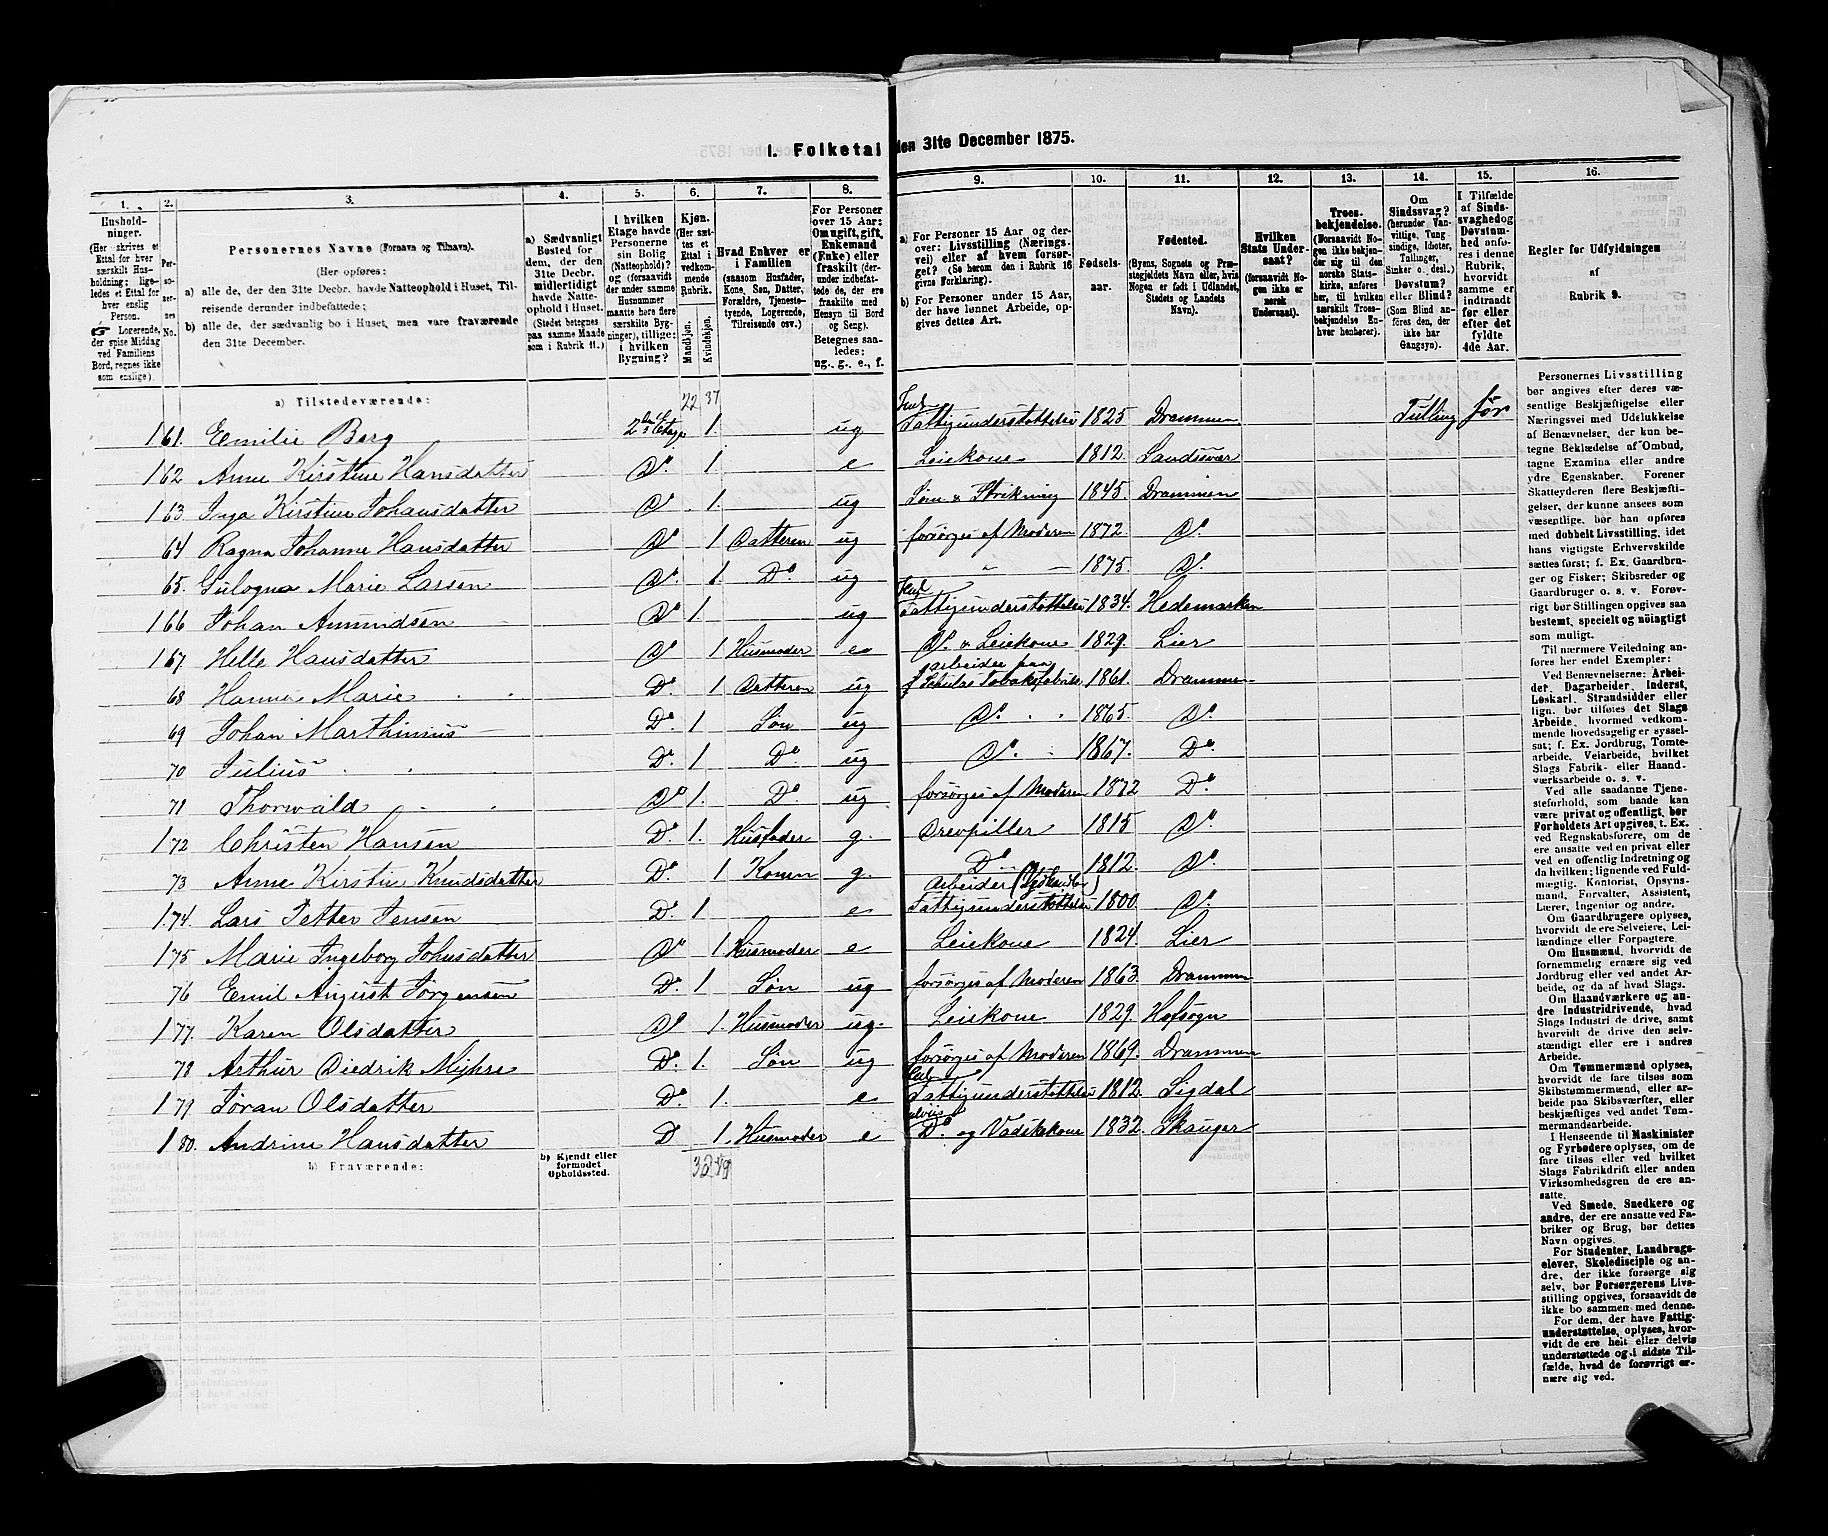 I. Folketal den 31te December 1875.
1. 2. 3. 4. 5. 6. 7. 8. 9. 10. 11. 12. 13. 14. 15. 16.
Husholdninger. (Her skrives et Ettal for hver særskilt Husholdning; ligeledes et Ettal for hver enslig Person. ☞ Logerende, der spise Middag ved Familiens Bord, regnes ikke som enslige).
Personernes No.
Personernes Navne (Fornavn og Tilnavn).
(Her opføres:
a) alle de, der den 31te Decbr. havde Natteophold i Huset, Tilreisende derunder indbefattede;
b) alle de, der sædvanlig bo i Huset, men vare fraværende den 31te December.
a) Sædvanligt Bosted for dem, der den 31te Decbr. midlertidigt havde Natteophold i Huset. (Stedet betegnes paa samme Maade som i Rubrik 11.)
I hvilken Etage havde Personerne sin Bolig (Natteophold)? og (forsaavidt der under samme Husnummer maatte høre flere særskilte Bygninger), tillige: i hvilken Bygning?
Kjøn. (Her sættes et Ettal i vedkommende Rubrik.
Mandkjøn. Kvindekjøn.
Hvad Enhver er i Familien (saasom Husfader, Kone, Søn, Datter, Forældre, Tjenestetyende, Logerende, Tilreisende osv.)
For Personer over 15 Aar: Om ugift, gift, Enkemand (Enke) eller fraskilt (derunder indbefattede de, der ere fraskilte med Hensyn til Bord og Seng). Betegnes saaledes: ug., g., e., f.
a) For Personer 15 Aar og derover: Livsstilling (Næringsvei) eller af hvem forsørget? (Se herom den i Rubrik 16 givne Forklaring).
b) For Personer under 15 Aar, der have lønnet Arbeide, opgives dettes Art.
Fødselsaar.
Fødested. (Byens, Sognets og Præstegjeldets Navn eller, hvis Nogen er født i Udlandet, Stedets og Landets Navn).
Hvilken Stats Undersaat? (forsaavidt Nogen ikke er norsk Undersaat).
Troesbekjendelse. (Forsaavidt Nogen ikke bekjender sig til den norske Statskirke, anføres her, til hvilken særskilt Troesbekjendelse Enhver henhører).
Om Sindssvag? (herunder Vanvittige, Tungsindige, Idioter, Tullinger, Sinker o. desl.) Døvstum? eller Blind? (Som Blind anføres den, der ikke har Gangsyn).
I Tilfælde af Sindssvaghed og Døvstumhed anføres i denne Rubrik, hvorvidt samme er indtraadt før eller efter det fyldte 4de Aar.
Regler for Udfyldningen af Rubrik 9.
a) Tilstedeværende: 22 37
1 61. Emilie Borg 2den Etage 1. ug Fattigunderstøttelse 1825 Drammen Tulling før
1 62 Anne Kirstine Hansdatter Do. 1. e Leiekone 1812. Sandsvær
1 63 Inga Kirstine Johansdatter Do . 1. ug Søm & Strikning 1845. Drammen
64 Ragna Johanne Hansdatter Do 1 Datteren ug forsørges af Moderen 1872. Do.
65. Gulogna Marie Larsen Do. 1. Do. ug „ — 1875. Do.
1 66 Johan Amundsen Do 1. ug Fattigunderstøttelse 1834. Hedemarken
1 67. Helle Hansdatter Do 1 Husmoder e Do. & Leiekone 1829. Lier
68 Hanna Marie Do. 1 Datteren ug arbeider paa Tobaksfabrik 1861. Drammen
69 Johan Marthinius Do. 1 Søn ug Do. 1865. Do.
70 Julius Do. 1 Do. ug Do. 1867. Do.
71 Thorwald Do 1. Do. ug forsørges af Moderen 1872 Do
1 72 Christen Hansen Do. 1. Husfader g. 1815 Do
73 Anne Kirstine Knudsdatter Do. 1 Konen g. Do 1812. Do.
1.74. Lars Petter Jensen Do. 1 e Arbeider Fattigunderstøttelse 1800. Do.
1 75 Marie Ingeborg Johnsdatter Do 1 Husmoder e Leiekone 1824. Lier
76 Emil August Jørgensen Do. 1 Søn ug forsørges af Moderen 1863. Drammen
1 77. Karen Olsdatter Do 1. Husmoder ug. Leiekone 1829. Hofsogn
78 Arthur Diedrik Myhre Do. 1. Søn ug forsørges af Moderen 1869. Drammen
1 79 Jøran Olsdatter Do. 1. e Fattigunderstøttelse 1812. Sigdal
1 80. Andrine Hansdatter D 1. Husmoder e delvis Do. og Vadskekone 1832. Skauger
b) Fraværende:
b) Kjendt eller formodet Opholdssted.
32 49
Personernes Livsstilling bør angives efter deres væsentlige Beskjæftigelse eller Næringsvei med Udelukkelse af Benævnelser, der kun betegne Beklædelse af Ombud, tagne Examina eller andre ydre Egenskaber. Forener Skatteyderen flere Beskjæftigelser, der kunne ansees som væsentlige, bør han opføres med dobbelt Livsstilling, idet hans vigtigste Erhvervskilde sættes først; f. Ex. Gaardbruger og Fisker; Skibsreder og Gaardbruger o. s. v. Forøvrigt bør Stillingen opgives saa bestemt, specielt og nöiagtigt som muligt.
Til nærmere Veiledning anføres her endel Exempler:
Ved Benævnelserne: Arbeider, Dagarbeider, Inderst, Løskarl, Strandsidder eller lign. bør tilføies det Slags Arbeide, hvormed vedkommende hovedsagelig er sysselsat; f. Ex. Jordbrug, Tomtearbeide, Veiarbeide, hvilket Slags Fabrik- eller Haandværksarbeide o. s. v.
Ved alle saadanne Tjenesteforhold, som baade kan være privat og offentligt, bør Forholdets Art opgives, t. Ex. ved Regnskabsførere, om de ere ansatte ved en privat eller ved en offentlig Indretning og da hvilken; lignende ved Fuldmægtig, Kontorist, Opsynsmand, Forvalter, Assistent, Lærer, Ingeniør og andre.
Om Gaardbrugere oplyses, hvorvidt de ere Selveiere, Leilændinge eller Forpagtere.
Om Husmænd, hvorvidt de fornemmelig ernære sig ved Jordbrug eller ved andet Arbeide, og da af hvad Slags.
Om Haandværkere og andre Industridrivende, hvad Slags Industri de drive, samt hvorvidt de drive den selvstændigt eller ere i andres Arbeide.
Om Tømmermænd oplyses, hvorvidt de fare tilsøs som Skibstømmermænd, eller arbeide paa Skibsværfter, eller beskjæftiges ved andet Tømmermandsarbeide.
I Henseende til Maskinister og Fyrbødere oplyses, om de fare tilsøs eller ved hvilket Slags Fabrikdrift eller anden Virksomhedsgren de ere ansatte.
Ved Smede, Snedkere og andre, der ere ansatte ved Fabriker og Brug, bør dettes Navn opgives.
For Studenter, Landbrugselever, Skoledisciple og andre, der ikke forsørge sig selv, bør Forsørgerens Livsstilling opgives, forsaavidt de ikke bo sammen med denne.
For dem, der have Fattigunderstøttelse, oplyses, hvorvidt de ere helt eller delvis understøttede og i sidste Tilfælde, hvad de forøvrigt ernære sig ved.